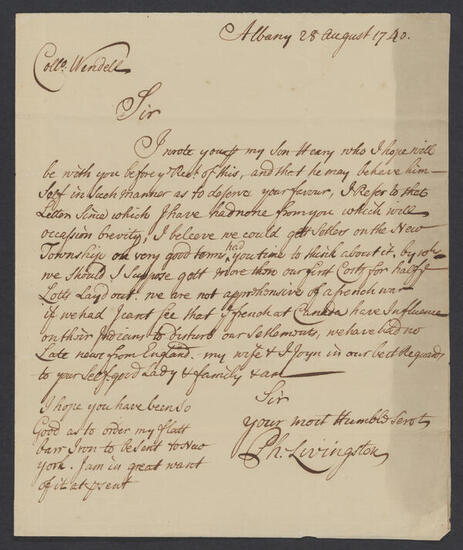 Albany 28 August 1740.
Collo. Wendell
Sir
I wrote you p my Son Henry who I hope will
be with you before ye Rect of this, and that he may behave him
Self in Such manner as to deserve your favour, I Refer to that
Letter Since which I have had none from you which will
occassion brevity, I beleeve we could gett Setlers on the New
Township on very good terms had you time to think about it, by
we Should I Suppose gett more than our first Costs for half ye
Lotts Layd out. we are not apprehensive of a french war
if we had I cant See that ye french at Canada have Influence
on their Indians to disturb our Settlements, we have had no
Late news from England. my wife & I Joyn in our best Regards
to your Self good Lady & family & am
Sir
your most Humble Servt
Ph Livingston
I hope you have been So
Good as to order my flatt
barr Iron to be Sent to New
york. I am in great want
of it at psent